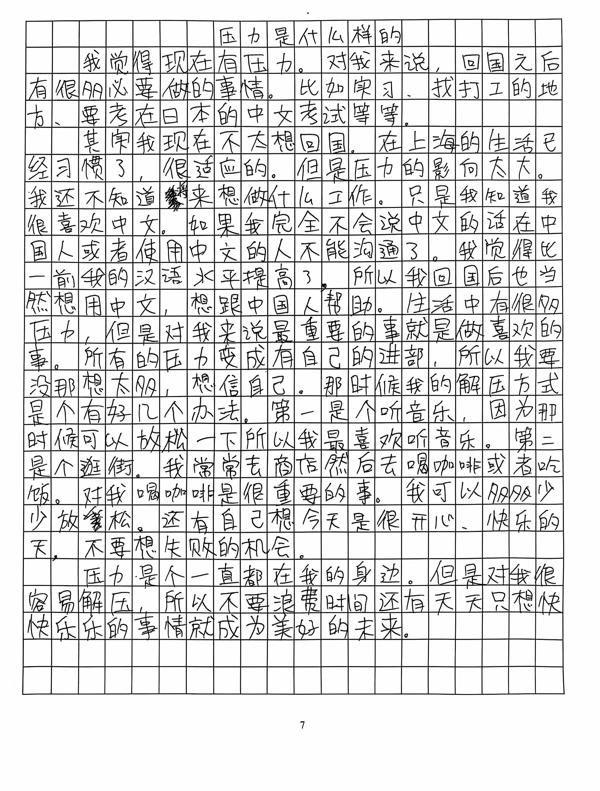 压力是什么样的
我觉得现在有压力。对我来说，回国元后
有很多必要做的事情。比如实习、找打工的地
方、要考在日本的中文考试等等。
其实我现在不太想回国。在上海的生活已
经习惯了，很适应的。但是压力的影向太大。
我还不知道将来想做什么工作。只是我知道我
很喜欢中文。如果我完全不会说中文的话在中
国人或者使用中文的人不能沟通了。我觉得比
一前我的汉语水平提高了。所以我回国后也当
然想用中文，想跟中国人帮助。生活中有很多
压力，但是对我来说最重要的事就是做喜欢的
事。所有的压力变成有自己的进部，所以我要
没那想太多，想信自己。那时候我的解压方式
是个有好几个办法。第一是个听音乐，因为那
时候可以放松一下所以我最喜欢听音乐。第二
是个逛街。我常常去商店然后去喝咖啡或者吃
饭。对我喝咖啡是很重要的事。我可以多多少
少放松。还有自己想今天是很开心、快乐的
天，不要想失败的机会。
压力是个一直都在我的身边。但是对我很
容易解压，所以不要浪费时间还有天天只想快
快乐乐的事情就成为美好的未来。
7